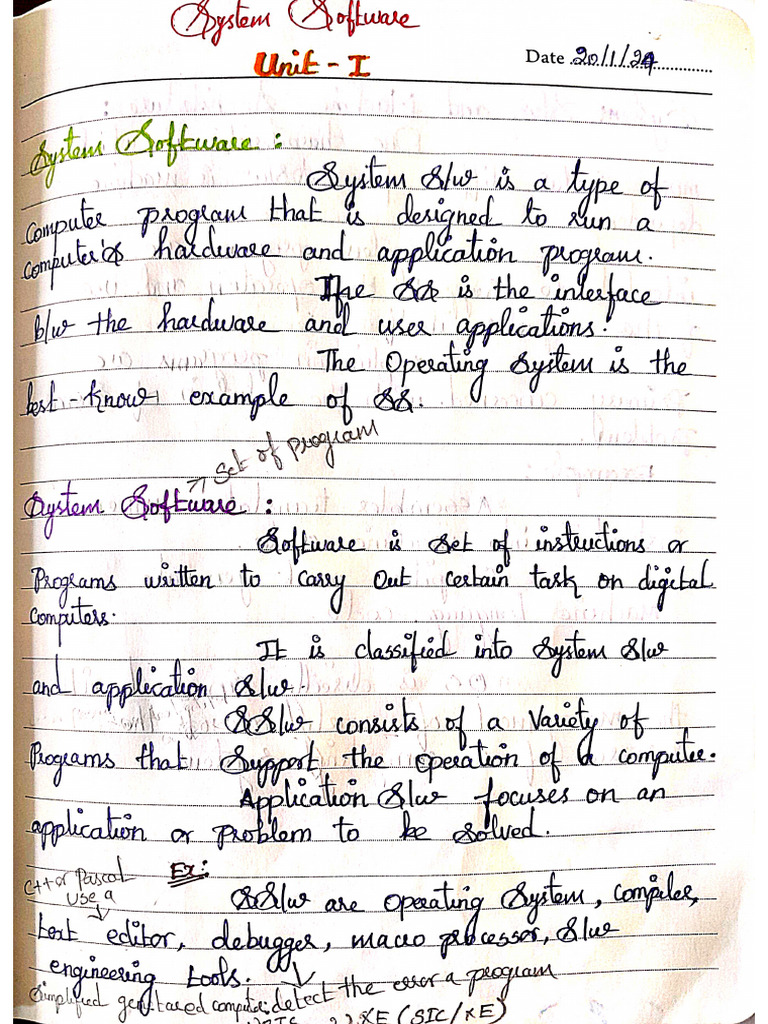 System Software
Unit - I
Date 20/1/24
System Software :
System S/w is a type of
computer program that is designed to run a
computer's hardware and application program.
The SS is the interface
b/w the hardware and user applications.
The Operating System is the
best - know example of SS.
→ Set of program
System Software :
Software is set of instructions or
Programs written to carry out certain task on digital
computers.
It is classified into System S/w
and application S/w.
SS/w consists of a variety of
Programs that Support the operation of a computer.
Application S/w focuses on an
application or problem to be solved.
C++ or Pascal Ex:
use a
SS/w are operating System, compiler,
text editor, debugger, macro processor, S/w
engineering tools. detect the error a program
Simplified
XE (SIC/XE)